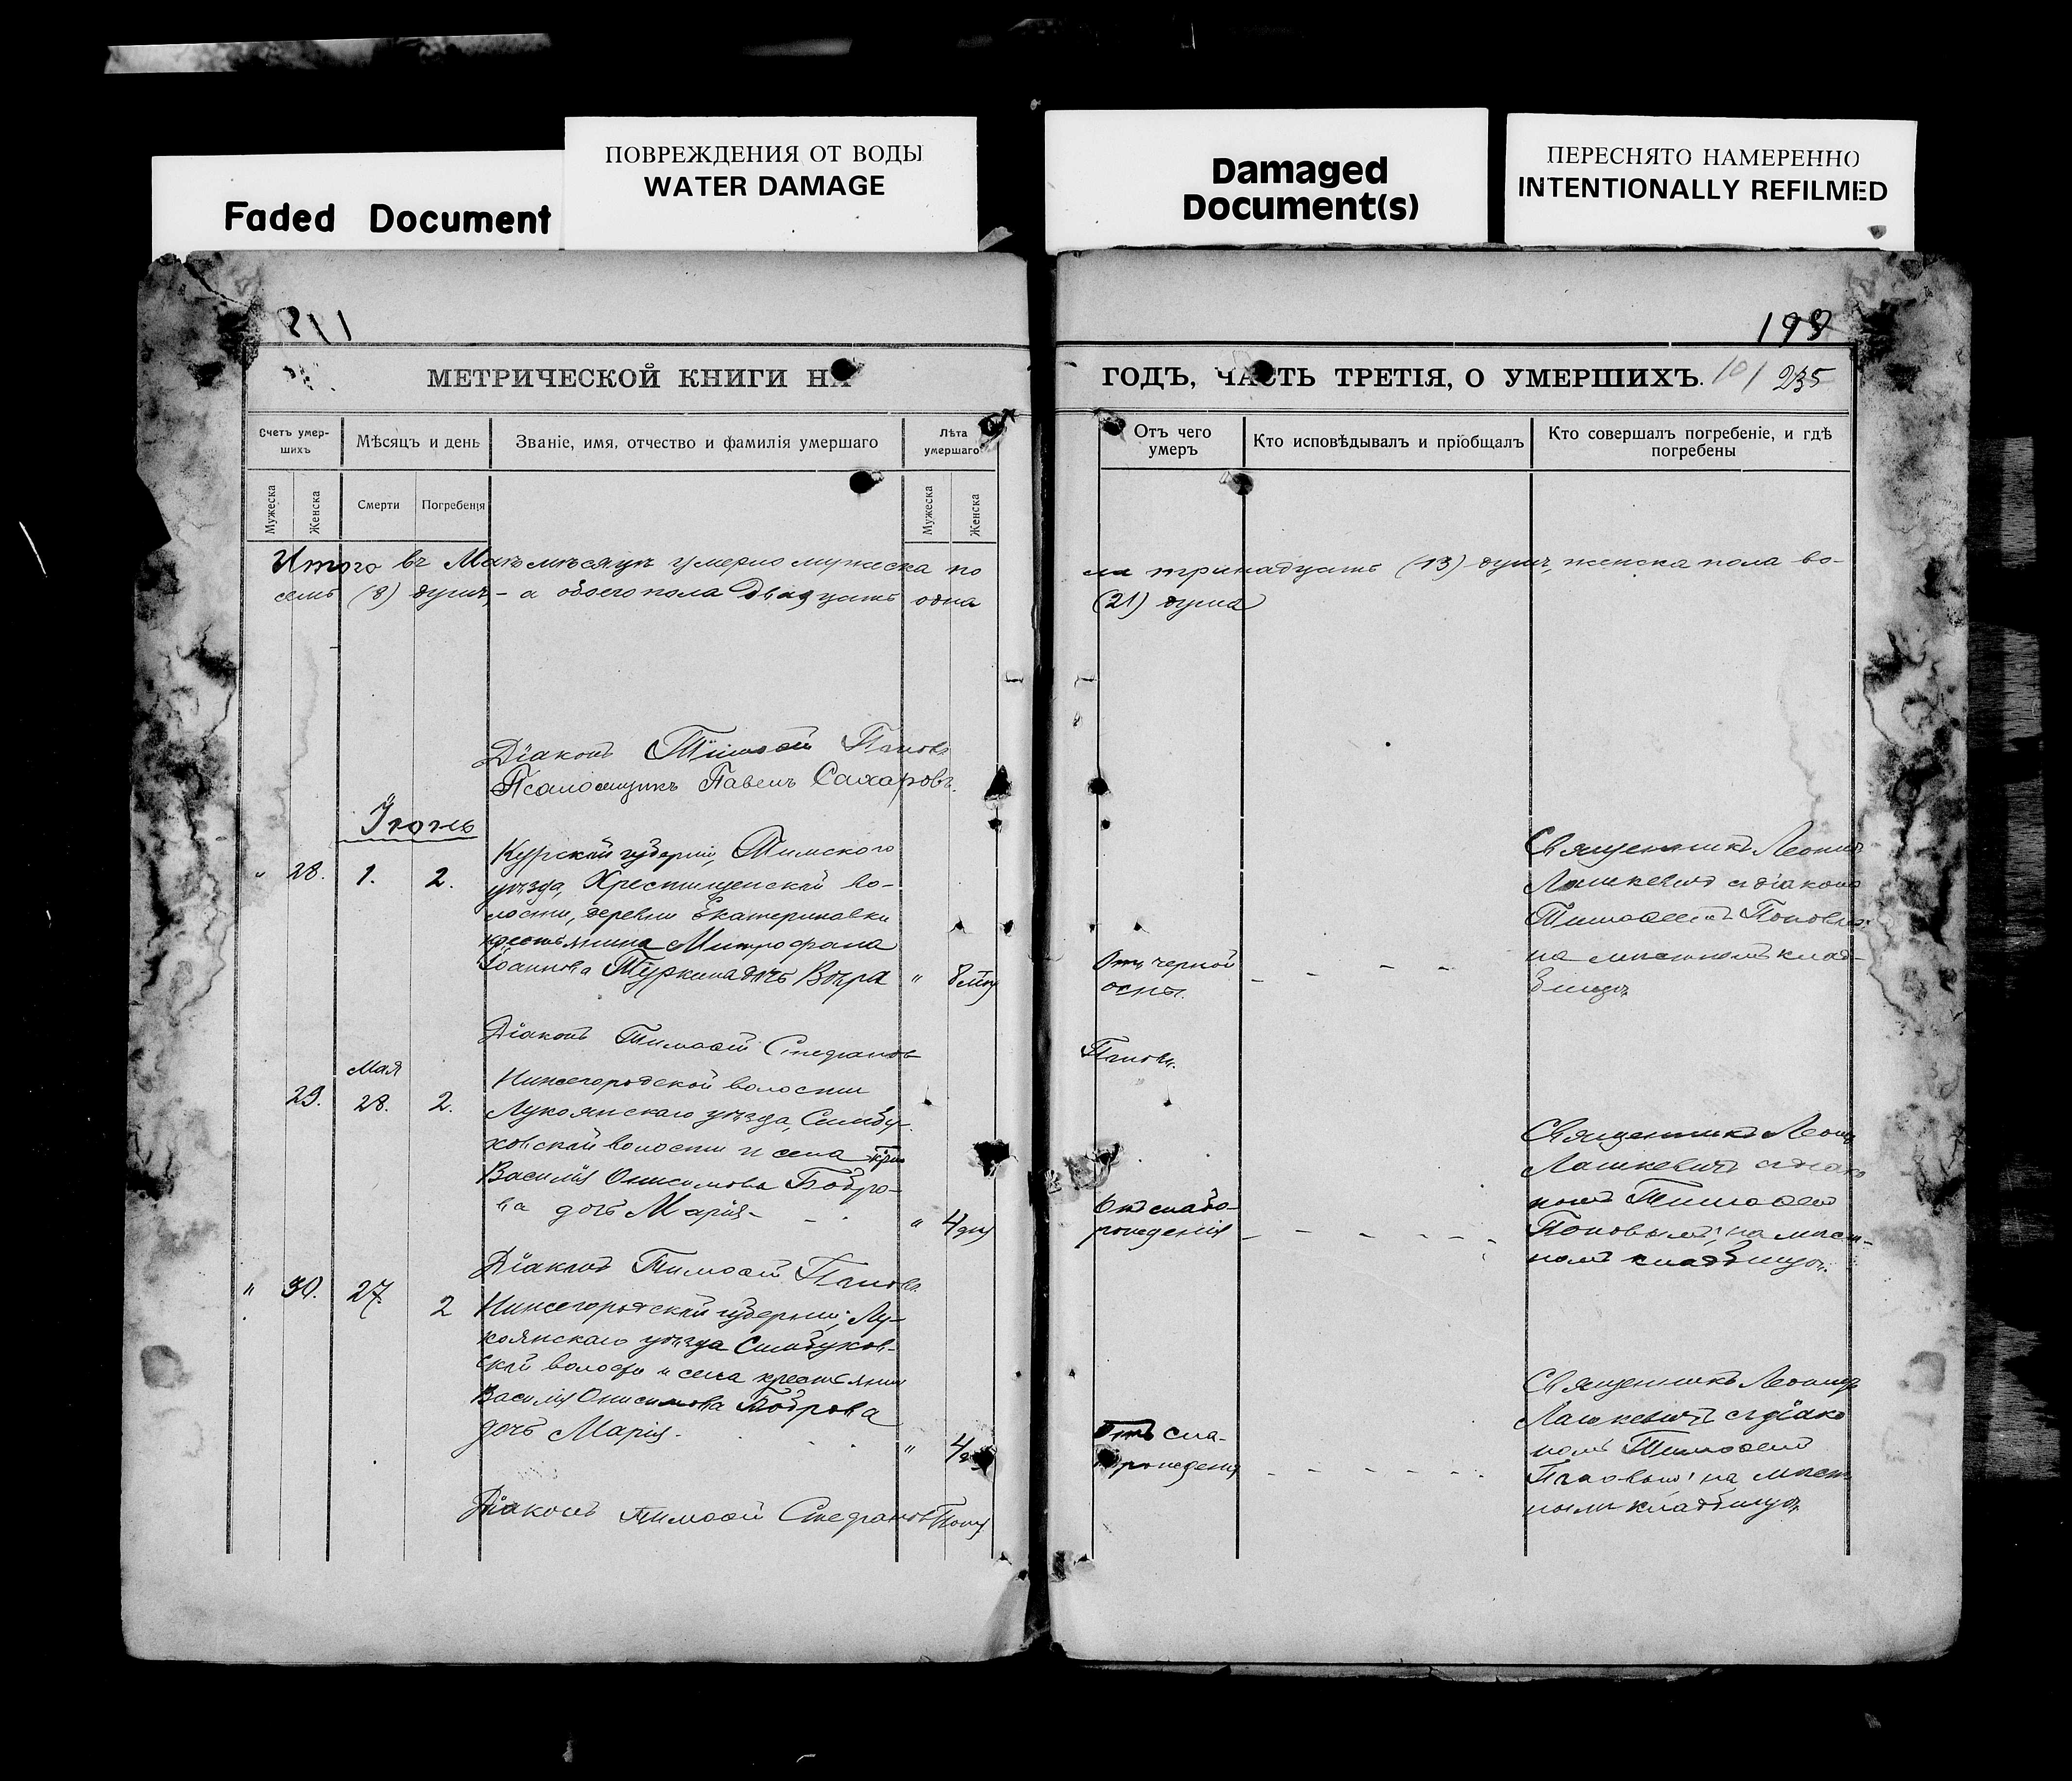 Faded Document
ПОВРЕЖДЕНИЯ ОТ ВОДЫ
WATER DAMAGE
Damaged
Document(s)
ПЕРЕСНЯТО НАМЕРЕННО
INTENTIONALLY REFILMED
198
МЕТРИЧЕСКОЙ КНИГИ НА
ГОДЪ, ЧАСТЬ ТРЕТІЯ, О УМЕРШИХЪ. 101 235
Счетъ умер-
шихъ
Мѣсяцъ и день
Званіе, имя, отчество и фамилія умершаго
Лѣта
умершаго
Отъ чего
умеръ
Кто исповѣдывалъ и пріобщалъ
Кто совершалъ погребеніе, и гдѣ
погребены
Мужеска
Женска
Смерти
Погребенія
Мужеска
Женска
Итого въ Маѣ мѣсяцѣ умерло мужеска по
ла тринадцать (13) душъ, женска пола во-
семь (8) душъ, - а обоего пола двадцать одна
(21) душа
Діаконъ Тимоѳей Поповъ
Псаломщикъ Павелъ Сахаровъ.
Іюнь
" 28. 1. 2.
Курской губерніи, Тимского
уѣзда, Хрестищенской во-
лости, деревни Екатериновки
крестьянина Митрофана
Іоаннова Туркина дочь Вѣра " 8
Отъ черной
оспы.
Священникъ Леонидъ
Лашкевичъ съ діакономъ
Тимоѳеемъ Поповымъ
на мѣстномъ клад-
бищѣ.
Діаконъ Тимоѳей Стефановъ
Поповъ.
Мая
29. 28. 2.
Нижегородской волости
Лукоянскаго уѣзда, Симбу-
ховской волости и села
Василія Онисимова Бобро-
ва дочь Марія - " 4 дн
Отъ слабо-
рожденія
Священникъ Леонидъ
Лашкевичъ съ діако
номъ Тимоѳеемъ
Поповымъ; на мѣст-
номъ кладбищѣ.
Діаконъ Тимоѳей Поповъ
" 30. 27. 2
Нижегородской губерніи, Лу-
коянскаго уѣзда Симбухов-
ской волости и села крестьянина
Василія Онисимова Боброва
дочь Марія. " 4
Отъ сла-
борожденія
Священникъ Леонидъ
Лашкевичъ съ діако
номъ Тимоѳеемъ
Поповымъ на мѣст
номъ кладбищѣ
Діаконъ Тимоѳей Стефановъ Попов